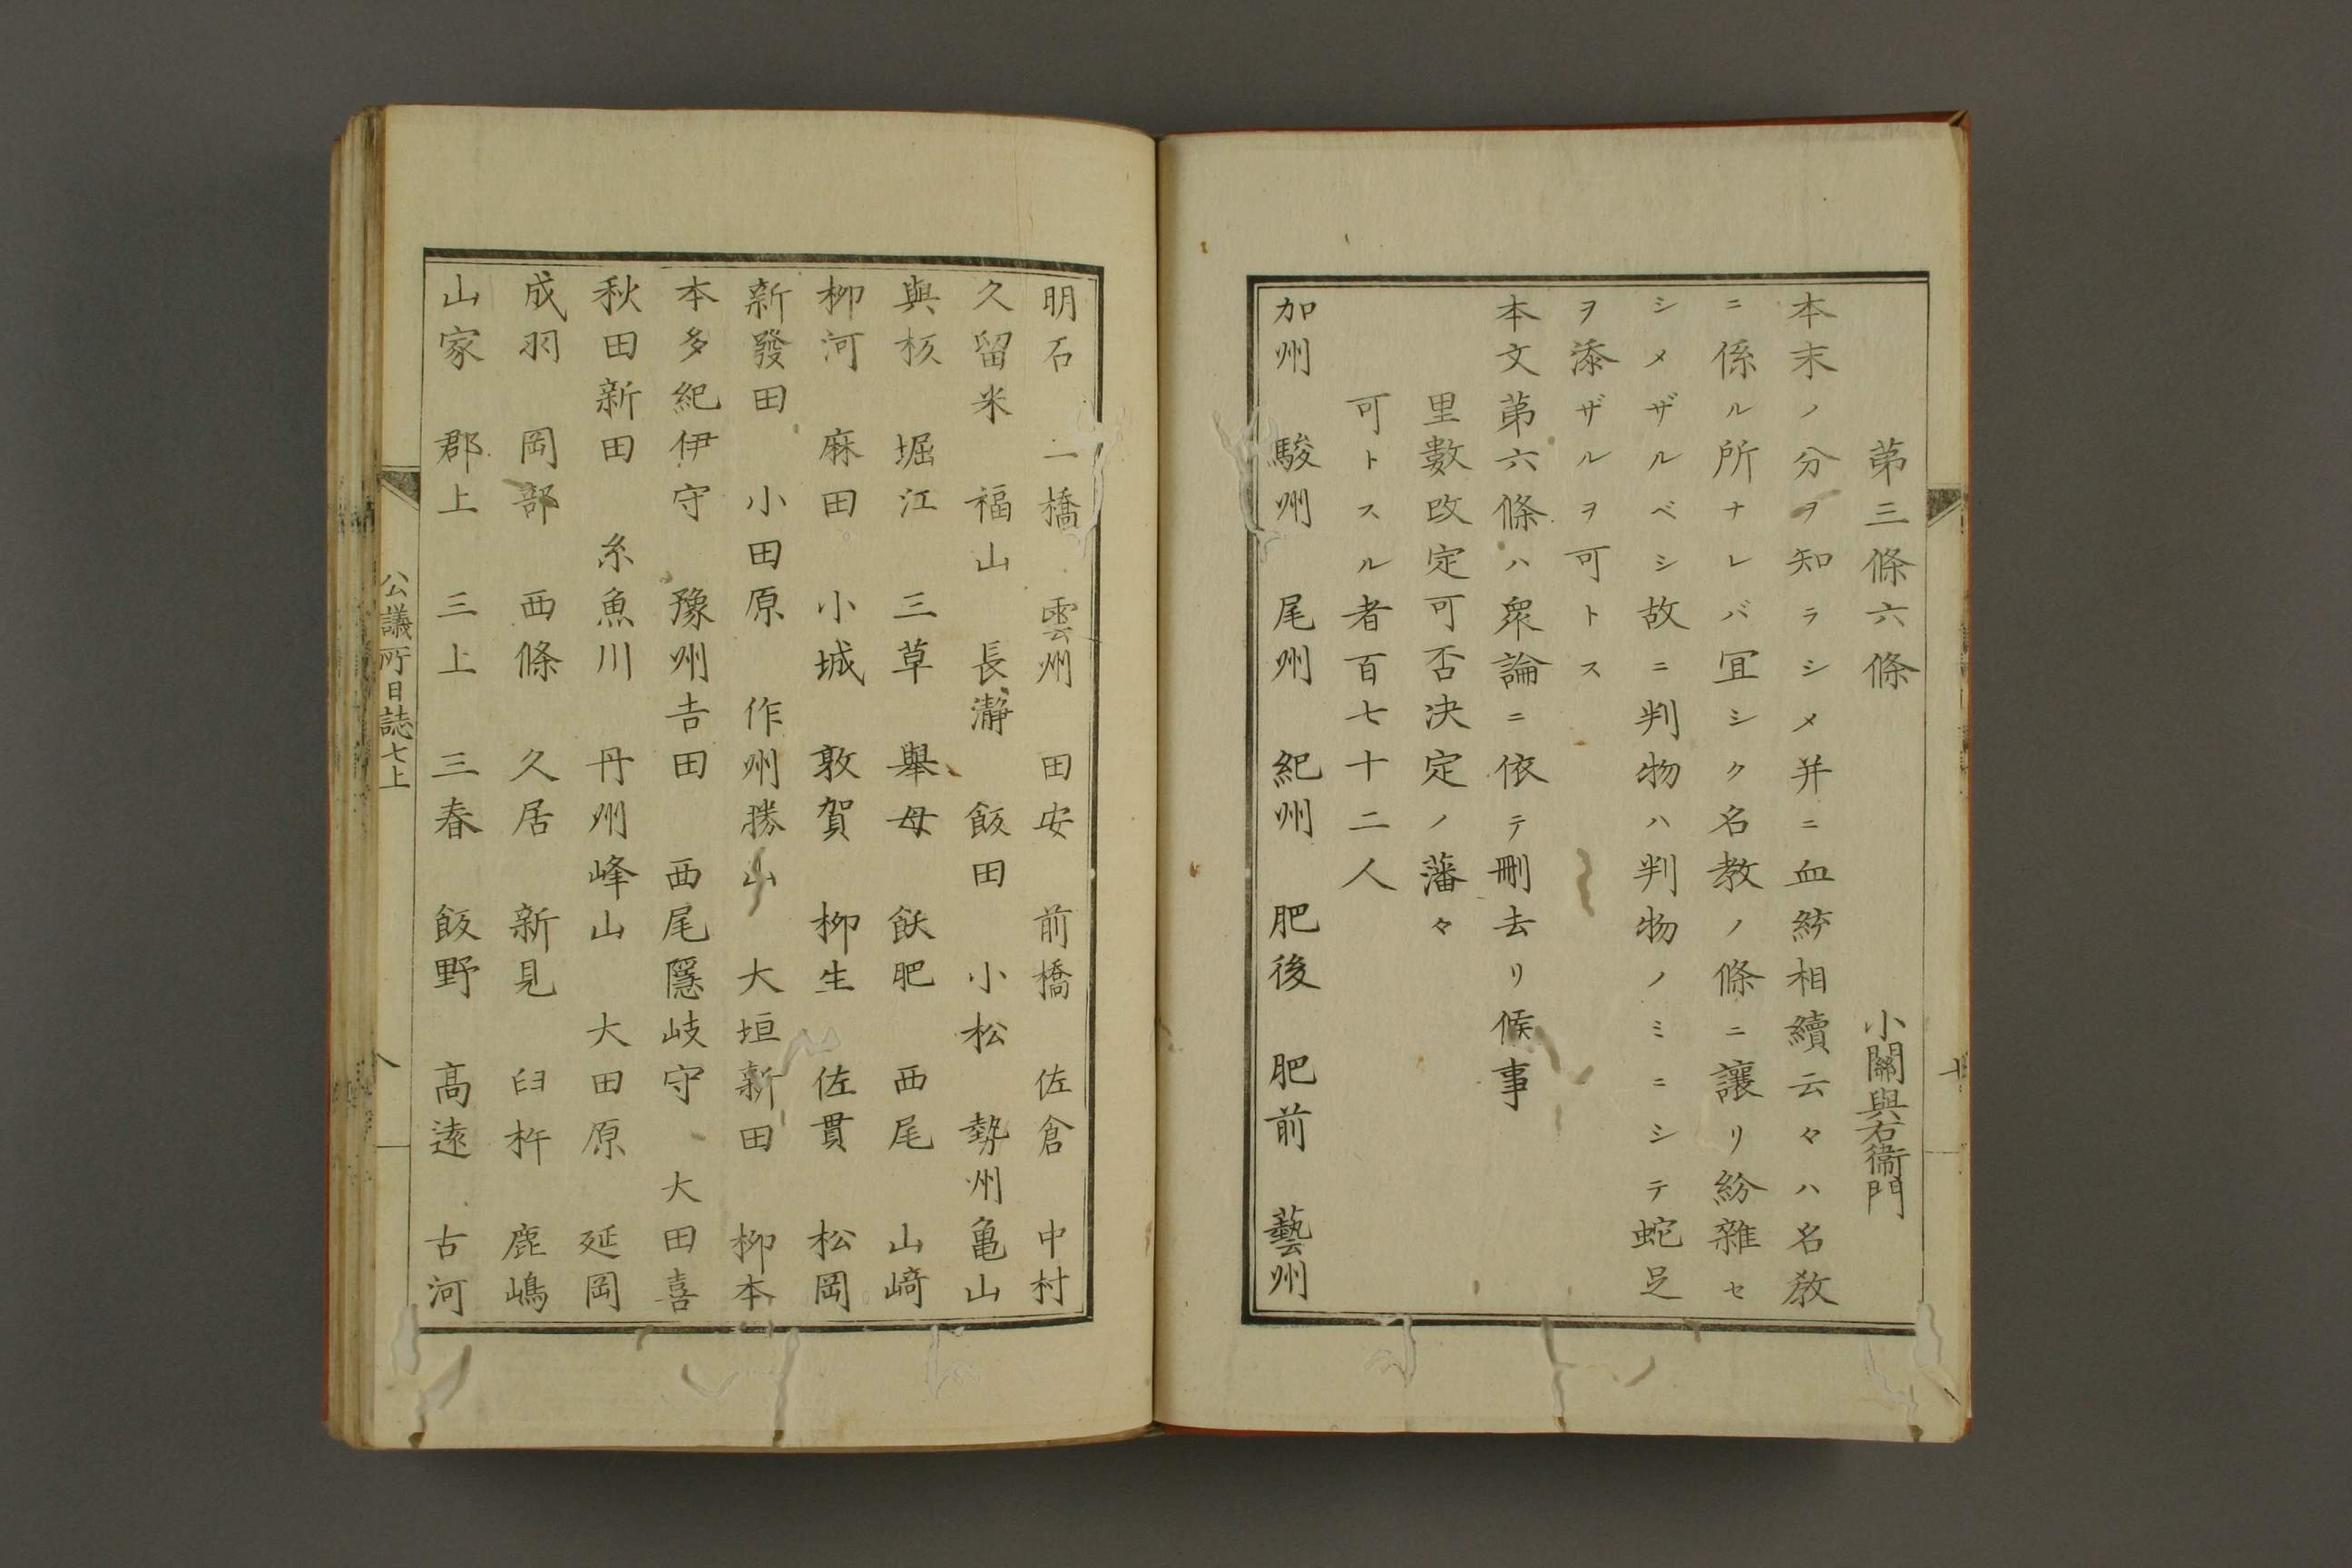 第三條六條
小關與右衞門
本末ノ分ヲ知ラシメ并ニ血統相續云々ハ名教
ニ係ル所ナレバ冝シク名教ノ條ニ讓リ紛雜セ
シメザルベシ故ニ判物ハ判物ノミニシテ蛇足
ヲ添ザルヲ可トス
本文第六條ハ衆論ニ依テ刪去リ候事
里數改定可否決定ノ藩々
可トスル者百七十二人
加州　駿州　尾州　紀州　肥後　肥前　藝州
明石　一橋　雲州　田安　前橋　佐倉　中村
久留米　福山　長瀞　飯田　小松　勢州亀山
與板　堀江　三草　擧母　飫肥　西尾　山﨑
柳河　麻田　小城　敦賀　柳生　佐貫　松岡
新發田　小田原　作州勝山　大垣新田　柳本
本多紀伊守　豫州吉田　西尾隱岐守　大田喜
秋田新田　糸魚川　丹州峰山　大田原　延岡
成羽　岡部　西條　久居　新見　臼杵　鹿嶋
山家　郡上　三上　三春　飯野　高遠　古河
公議所日誌七上
八